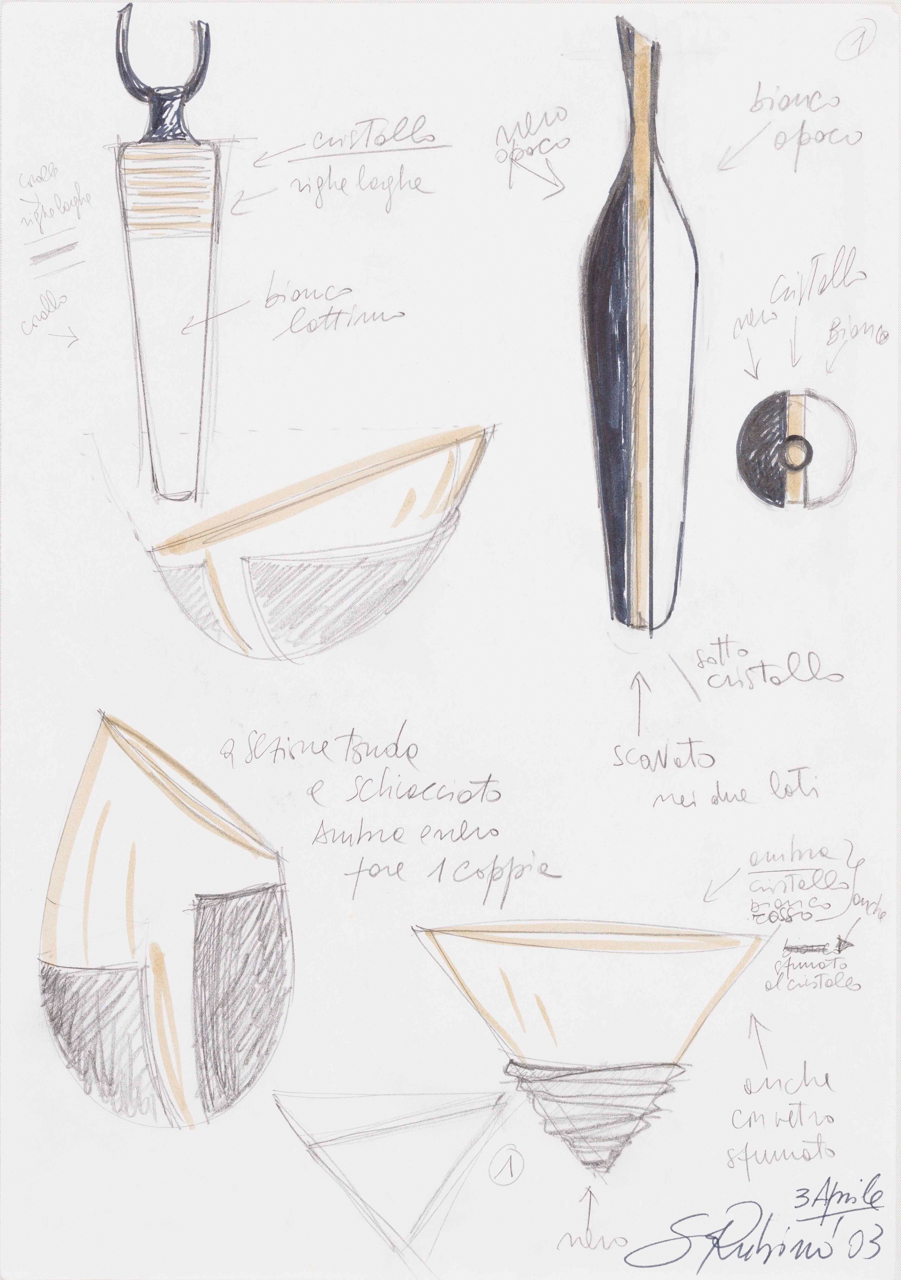 1
cristallo
righe larghe
corallo
righe larghe
corallo
bianco
lattimo
nero
opaco
bianco
opaco
nero
cristallo
Bianco
sotto
cristallo
scavato
nei due lati
a sezione tonda
e schiacciato
Ambra e nero
fare 1 coppia
ambra
cristallo
bianco
rosso
anche
sfumato
al cristallo
anche
con vetro
sfumato
1
nero
3 Aprile
S Rubino '03